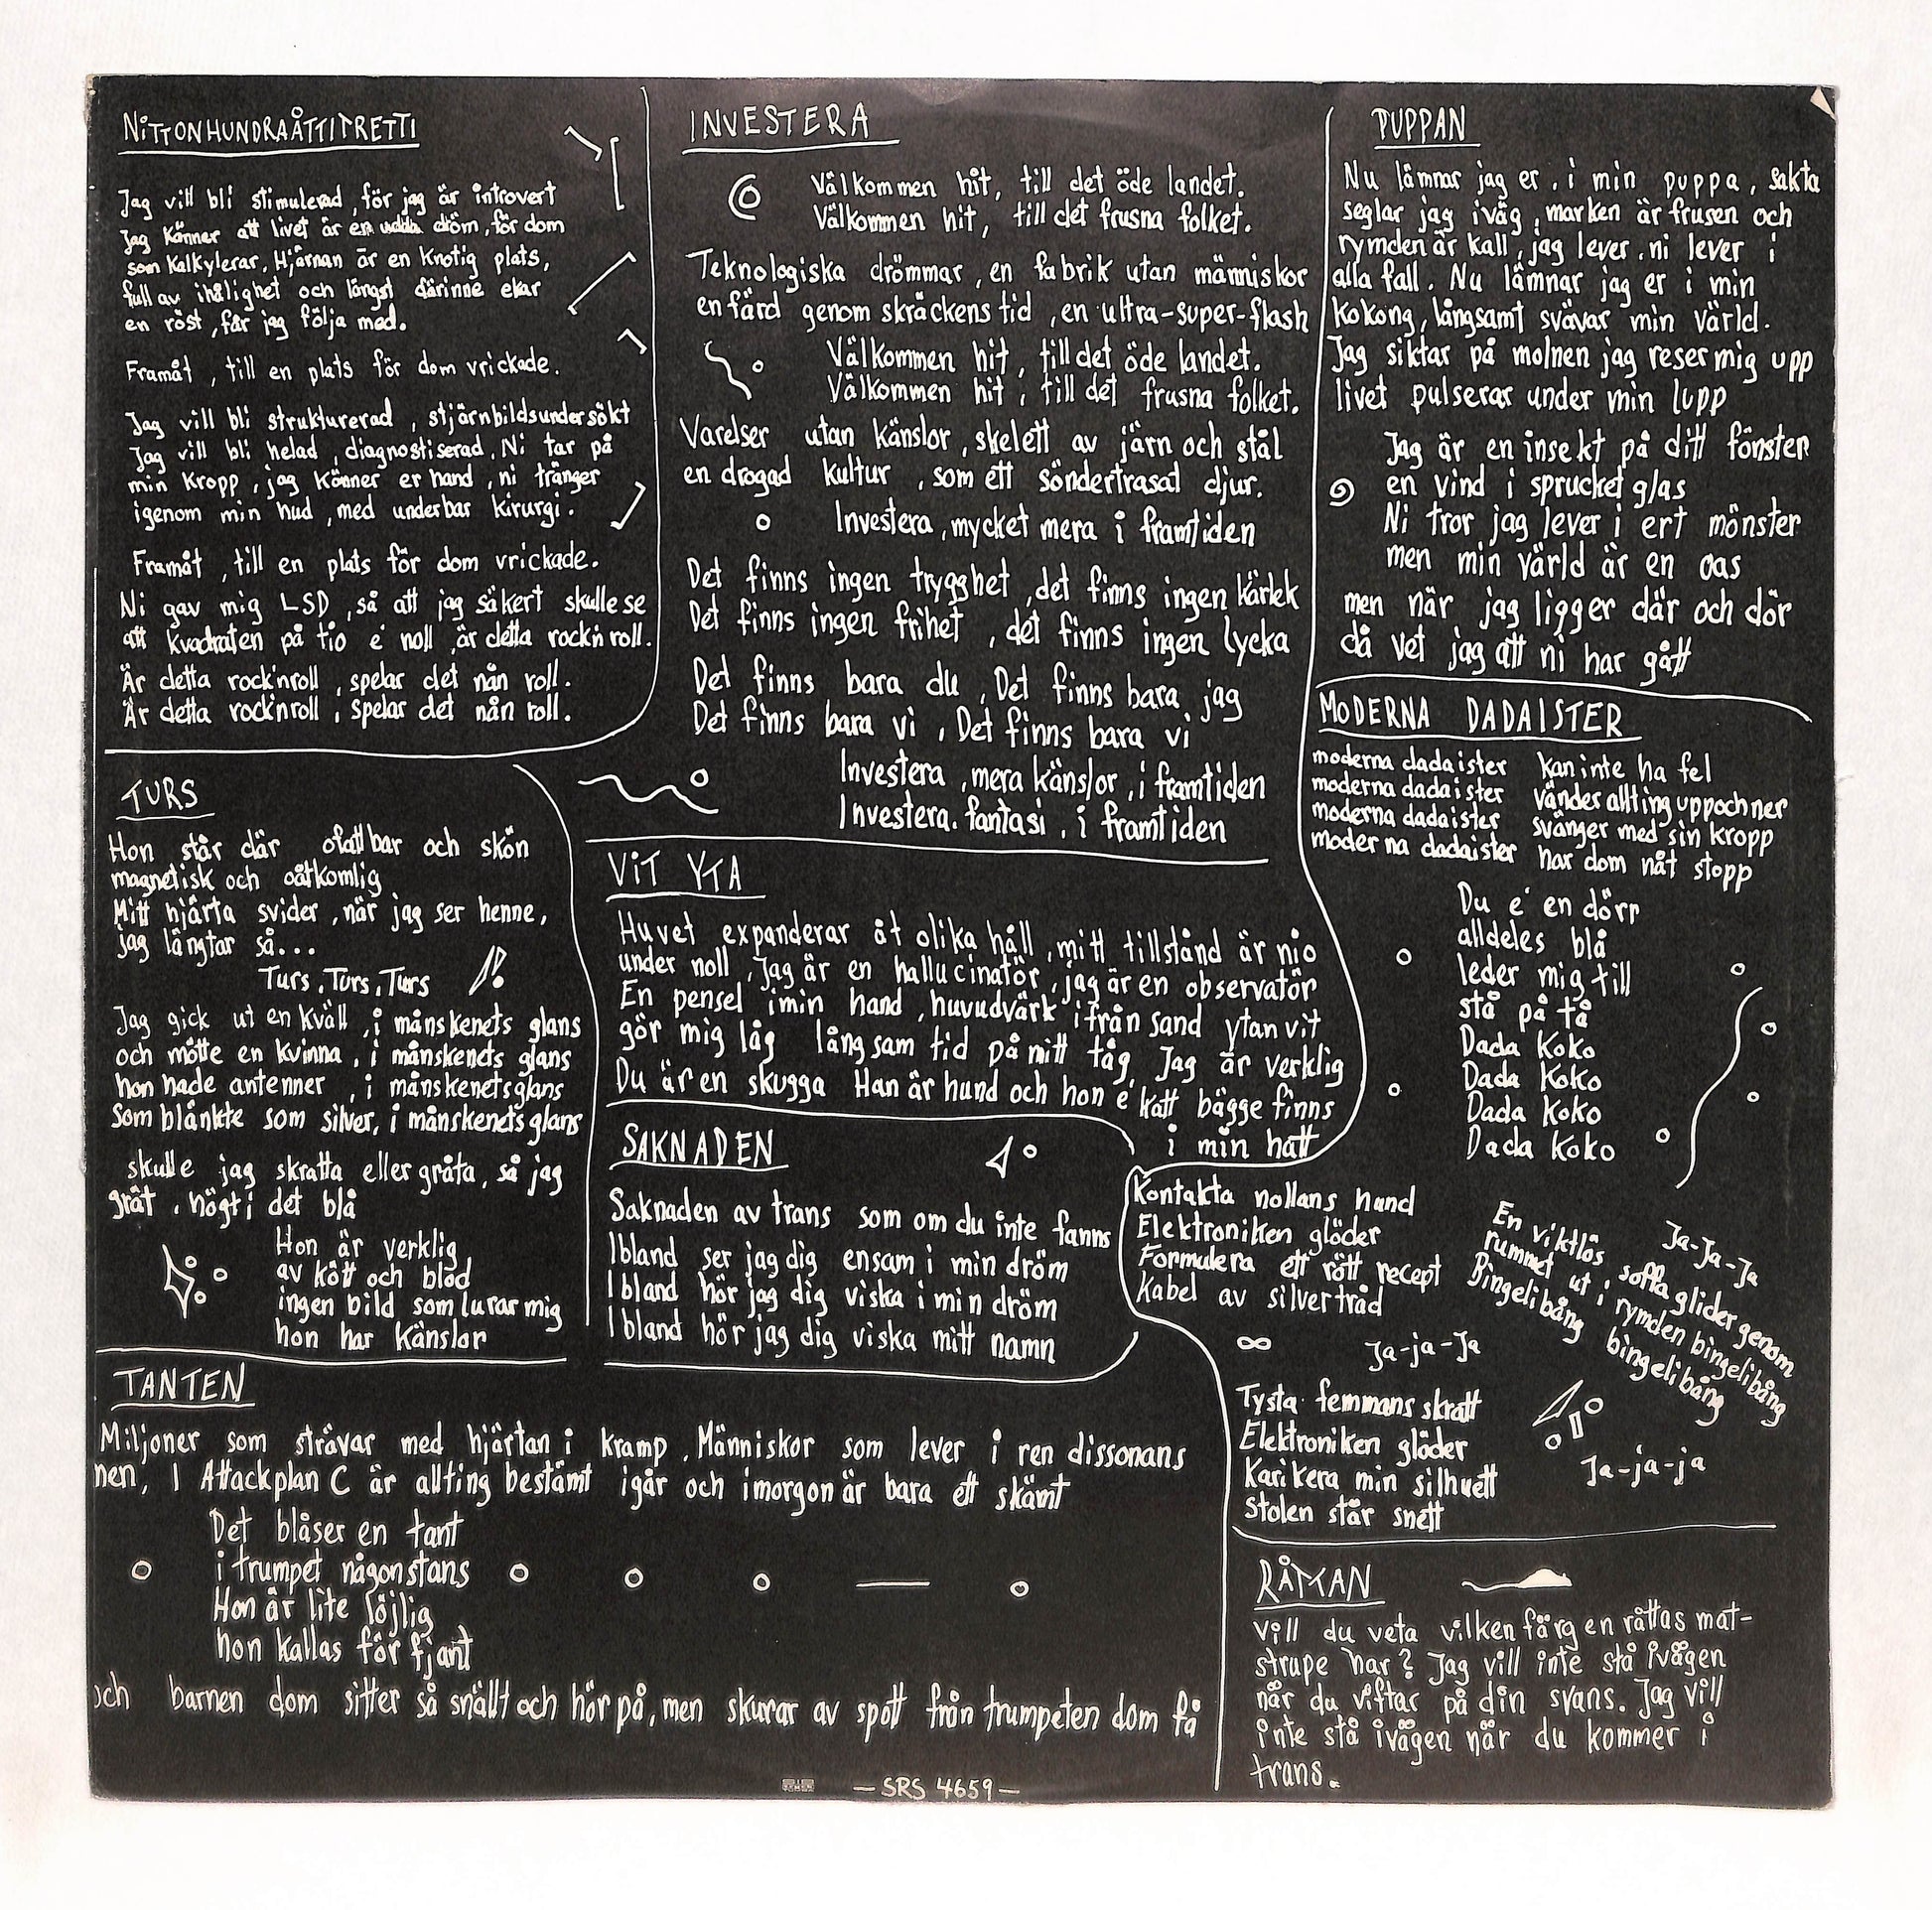 NITTONHUNDRAÅTTITRETTI
Jag vill bli stimulerad, för jag är introvert
Jag känner att livet är en udda dröm, för dom
som kalkylerar, Hjärnan är en knotig plats,
full av ihålighet och längst därinne ekar
en röst, får jag följa med.
Framåt, till en plats för dom vrickade.
Jag vill bli strukturerad, stjärnbildsundersökt
Jag vill bli helad, diagnostiserad, Ni tar på
min kropp, jag känner er hand, ni tränger
igenom min hud, med underbar kirurgi.
Framåt, till en plats för dom vrickade.
Ni gav mig LSD, så att jag säkert skulle se
att kvadraten på tio é noll, är detta rock'n roll.
Är detta rock'n roll, spelar det nån roll.
Är detta rock'n roll, spelar det nån roll.
INVESTERA
Välkommen hit, till det öde landet.
Välkommen hit, till det frusna folket.
Teknologiska drömmar, en fabrik utan människor
en färd genom skräckens tid, en ultra-super-flash
Välkommen hit, till det öde landet.
Välkommen hit, till det frusna folket.
Varelser utan känslor, skelett av järn och stål
en drogad kultur, som ett söndertrasat djur.
Investera, mycket mera i framtiden
Det finns ingen trygghet, det finns ingen kärlek
Det finns ingen frihet, det finns ingen lycka
Det finns bara du, Det finns bara jag
Det finns bara vi, Det finns bara vi
Investera, mera känslor, i framtiden
Investera, fantasi, i framtiden
PUPPAN
Nu lämnar jag er, i min puppa, sakta
seglar jag iväg, marken är frusen och
rymden är kall, jag lever, ni lever i
alla fall. Nu lämnar jag er i min
kokong, långsamt svävar min värld.
Jag siktar på molnen jag reser mig upp
livet pulserar under min lupp
Jag är en insekt på ditt fönster
en vind i sprucket glas
Ni tror jag lever i ert mönster
men min värld är en oas
men när jag ligger där och dör
då vet jag att ni har gått
TURS
Hon står där ofattbar och skön
magnetisk och oåtkomlig
Mitt hjärta svider, när jag ser henne,
jag längtar så...
Turs, Turs, Turs !!
Jag gick ut en kväll, i månskenets glans
och mötte en kvinna, i månskenets glans
hon hade antenner, i månskenets glans
Som blänkte som silver, i månskenets glans
skulle jag skratta eller gråta, så jag
grät, högt i det blå
Hon är verklig
av kött och blod
ingen bild som lurar mig
hon har känslor
VIT YTA
Huvet expanderar åt olika håll, mitt tillstånd är nio
under noll, Jag är en hallucinatör, jag är en observatör
En pensel i min hand, huvudvärk ifrån sand ytan vit
gör mig låg långsam tid på mitt tåg, Jag är verklig
Du är en skugga Han är hund och hon é katt bägge finns
i min hatt
SAKNADEN
Saknaden av trans som om du inte fanns
Ibland ser jag dig ensam i min dröm
Ibland hör jag dig viska i min dröm
Ibland hör jag dig viska mitt namn
MODERNA DADAISTER
moderna dadaister kan inte ha fel
moderna dadaister vänder allting uppochner
moderna dadaister svänger med sin kropp
moderna dadaister har dom nåt stopp
Du é en dörr
alldeles blå
leder mig till
stå på tå
Dada Koko
Dada Koko
Dada Koko
Dada Koko
Kontakta nollans hund
Elektroniken glöder
Formulera ett rött recept
Kabel av silvertråd
Ja-ja-Ja
Ja-Ja-Ja
En viktlös soffa glider genom
rummet ut i rymden bingelibång
Bingelibång bingelibång
Tysta femmans skratt
Elektroniken glöder
Karikera min silhuett
Stolen står snett
Ja-ja-ja
TANTEN
Miljoner som strävar med hjärtan i kramp, Människor som lever i ren dissonans
nen, I Attackplan C är allting bestämt igår och imorgon är bara ett skämt
Det blåser en tant
i trumpet någonstans
Hon är lite löjlig
hon kallas för fjant
och barnen dom sitter så snällt och hör på, men skurar av spott från trumpeten dom få
RÅTTAN
Vill du veta vilken färg en råttas mat-
strupe har? Jag vill inte stå ivägen
när du viftar på din svans. Jag vill
inte stå ivägen när du kommer i
trans.
— SRS 4659 —